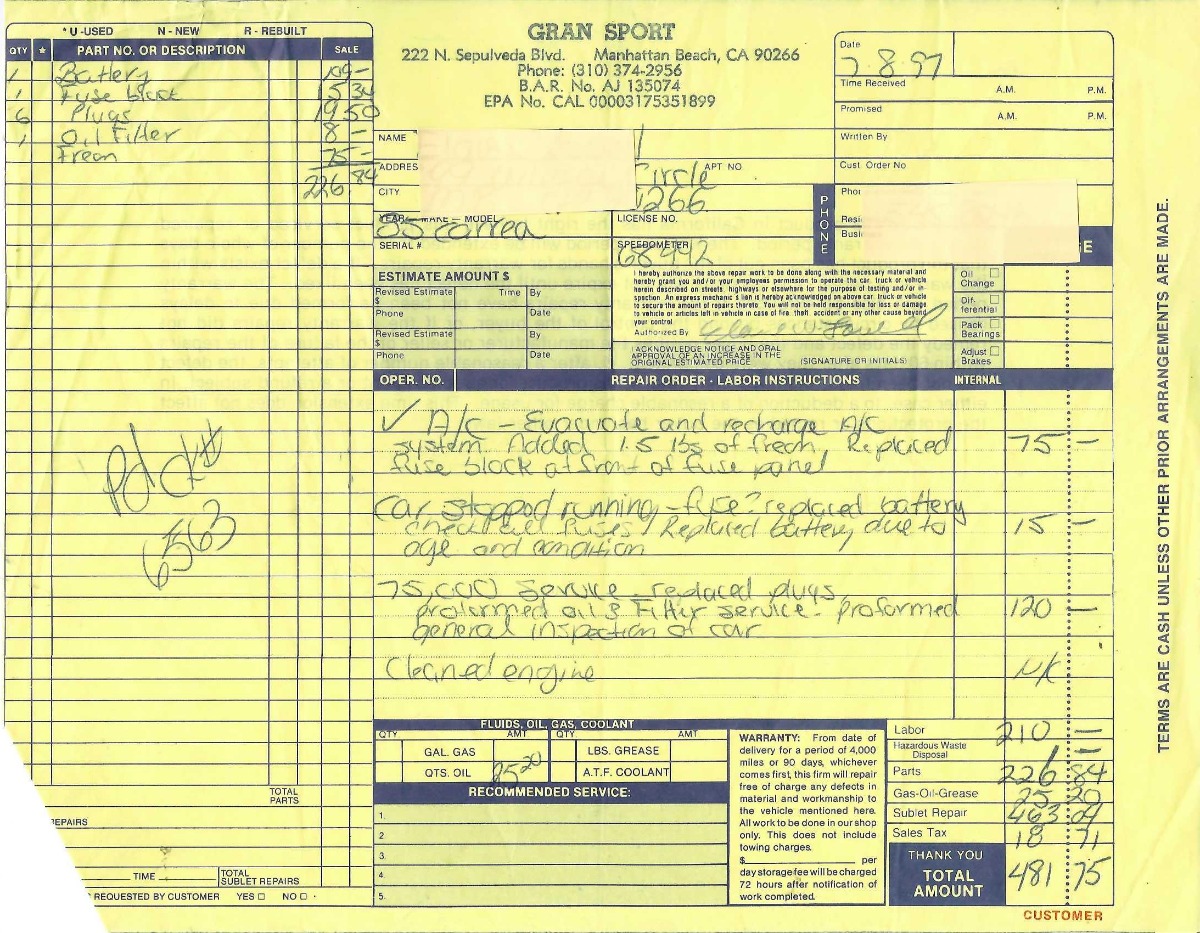 * U -USED N - NEW R - REBUILT
QTY * PART NO. OR DESCRIPTION SALE
1 Battery 109 -
1 Fuse block 15 34
6 Plugs 19 50
1 Oil Filter 8 -
Freon 75 -
226 84
Pd ck#
6563
TOTAL PARTS
EPAIRS
TIME
TOTAL SUBLET REPAIRS
REQUESTED BY CUSTOMER YES NO
GRAN SPORT
222 N. Sepulveda Blvd. Manhattan Beach, CA 90266
Phone: (310) 374-2956
B.A.R. No. AJ 135074
EPA No. CAL 00003175351899
Date
7-8-97
Time Received A.M. P.M.
Promised A.M. P.M.
Written By
Cust. Order No
NAME
ADDRES Circle APT NO
CITY 266
PHONE
Phor
Resi
Busi
YEAR - MAKE - MODEL
85 Carrea
LICENSE NO.
SERIAL #
SPEEDOMETER
68442
GE
ESTIMATE AMOUNT $
Revised Estimate Time By
$
Phone Date
Revised Estimate By
$
Phone Date
I hereby authorize the above repair work to be done along with the necessary material and
hereby grant you and/or your employees permission to operate the car, truck or vehicle
herein described on streets, highways or elsewhere for the purpose of testing and/or in-
spection. An express mechanic's lien is hereby acknowledged on above car, truck or vehicle
to secure the amount of repairs thereto. You will not be held responsible for loss or damage
to vehicle or articles left in vehicle in case of fire, theft, accident or any other cause beyond
your control.
Authorized By
I ACKNOWLEDGE NOTICE AND ORAL
APPROVAL OF AN INCREASE IN THE
ORIGINAL ESTIMATED PRICE (SIGNATURE OR INITIALS)
Oil Change
Dif-ferential
Pack Bearings
Adjust Brakes
OPER. NO. REPAIR ORDER - LABOR INSTRUCTIONS INTERNAL
✓ A/c - Evacuate and recharge A/C
system. Added 1.5 lbs of freon, Replaced 75 -
fuse block at front of fuse panel
Car stopped running - fuse? replaced battery
check all fuses / Replaced battery due to 15 -
age and condition
75,000 Service - replaced plugs,
proformed oil & Filter service - proformed 120 -
general inspection of car
Cleaned engine N/C
FLUIDS, OIL, GAS, COOLANT
QTY AMT QTY AMT
GAL. GAS LBS. GREASE
QTS. OIL 25 20 A.T.F. COOLANT
RECOMMENDED SERVICE:
1.
2.
3.
4.
5.
WARRANTY: From date of
delivery for a period of 4,000
miles or 90 days, whichever
comes first, this firm will repair
free of charge any defects in
material and workmanship to
the vehicle mentioned here.
All work to be done in our shop
only. This does not include
towing charges.
$ per
day storage fee will be charged
72 hours after notification of
work completed.
Labor 210 -
Hazardous Waste Disposal 1 -
Parts 226 84
Gas-Oil-Grease 25 20
Sublet Repair 463 04
Sales Tax 18 71
THANK YOU
TOTAL AMOUNT 481 75
CUSTOMER
TERMS ARE CASH UNLESS OTHER PRIOR ARRANGEMENTS ARE MADE.